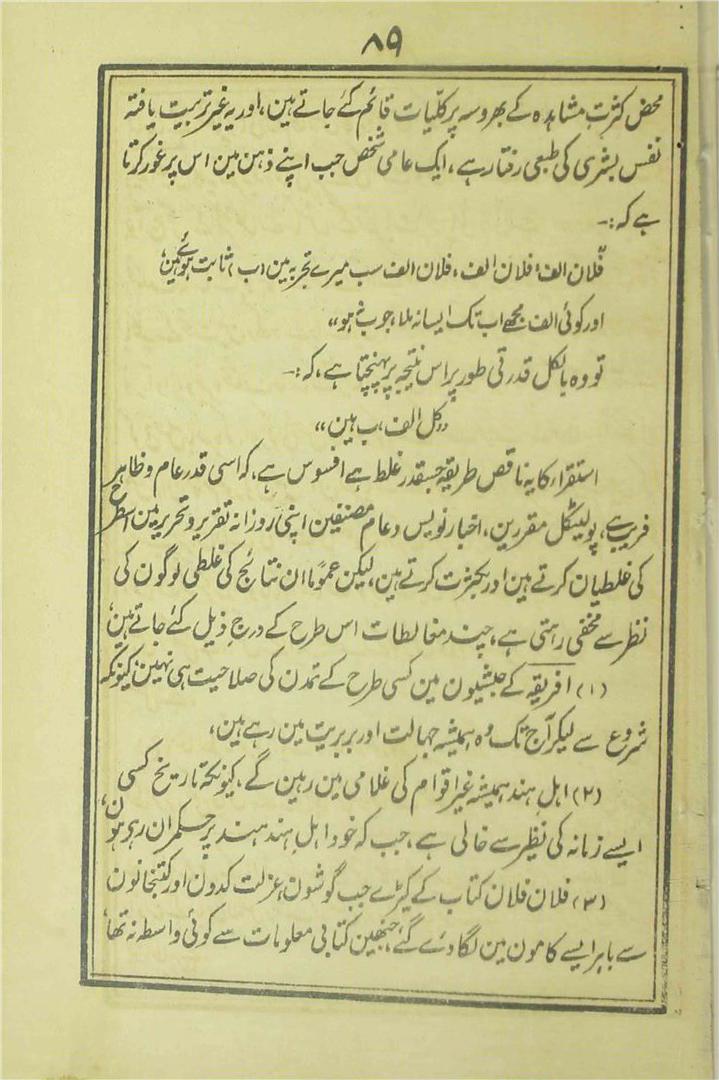 ۸۹
محض کثرتِ مشاہدہ کے بھروسہ پر کلّیات قائم کئے جاتے ہین، اور یہ غیر تربیت یافتہ
نفس بشری کی طبعی رفتار ہے، ایک عامی شخص جب اپنے ذہن مین اس پر غور کرتا
ہے کہ :۔
فلان الف، فلان الف، فلان الف سب میرے تجربہ مین (ب) ثابت ہوئے ہین،
اور کوئی الف مجھے اب تک ایسا نہ ملا، جو ب نہ ہو،،
تو وہ بالکل قدرتی طور پر اس نتیجہ پر پہنچتا ہے، کہ :۔
،،کل الف، ب ہین،،
استقراء کا یہ ناقص طریقہ جسقدر غلط ہے افسوس ہے، کہ اسی قدر عام و ظاہر
فریب ہے، پولیٹکل مقررین، اخبار نویس و عام مصنفین اپنی روزانہ تقریر و تحریر مین اسطرح
کی غلطیان کرتے ہین اور بکثرت کرتے ہین، لیکن عموًما ان نتائج کی غلطی لوگون کی
نظر سے مخفی رہتی ہے، چند مغالطات اس طرح کے درج ذیل کئے جاتے ہین،
(۱) افریقہ کے حبشیون مین کسی طرح کے تمدن کی صلاحیت ہی نہین، کیونکہ
شروع سے لیکر آج تک وہ ہمیشہ جہالت اور بربریت مین رہے ہین،
(۲) اہل ہند ہمیشہ غیر اقوام کی غلامی مین رہین گے، کیونکہ تاریخ کسی
ایسے زمانہ کی نظیر سے خالی ہے، جب کہ خود اہل ہند ہند پر حکمران رہے ہون،
(۳) فلان فلان کتاب کے کیڑے جب گوشون، عزلت کدون اور کتبخانون
سے باہر ایسے کامون مین لگا دئے گئے، جنھین کتابی معلومات سے کوئی واسطہ نہ تھا،